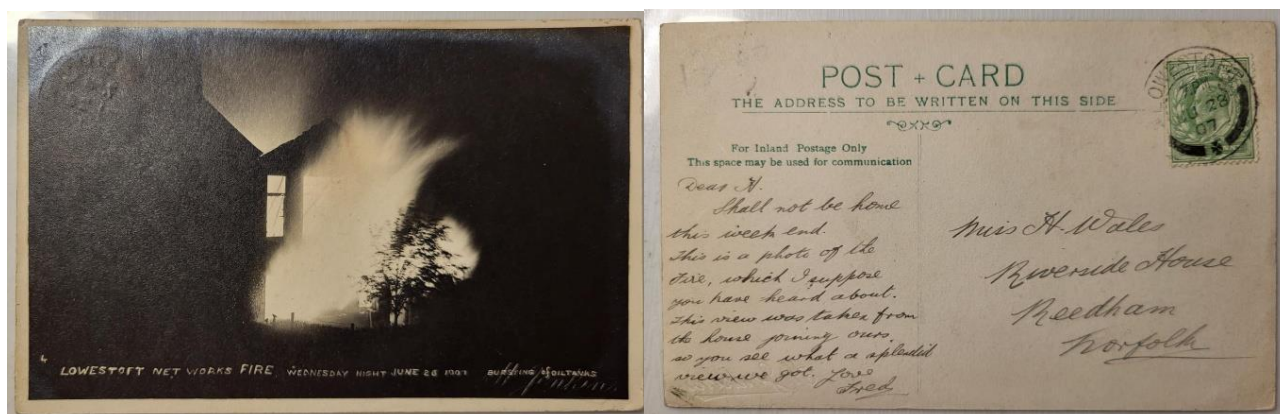 4
LOWESTOFT NET WORKS FIRE, WEDNESDAY NIGHT JUNE 26 1907 BURSTING OF OIL TANKS
H. Jenkins
POST + CARD
THE ADDRESS TO BE WRITTEN ON THIS SIDE
For Inland Postage Only
This space may be used for communication
Dear H.
Shall not be home
this week end.
This is a photo of the
Fire, which I suppose
you have heard about.
This view was taken from
the house joining ours,
so you see what a splendid
view we got. Love
Fred
LOWESTOFT
28
07
Miss H. Wales
Riverside House
Reedham
Norfolk